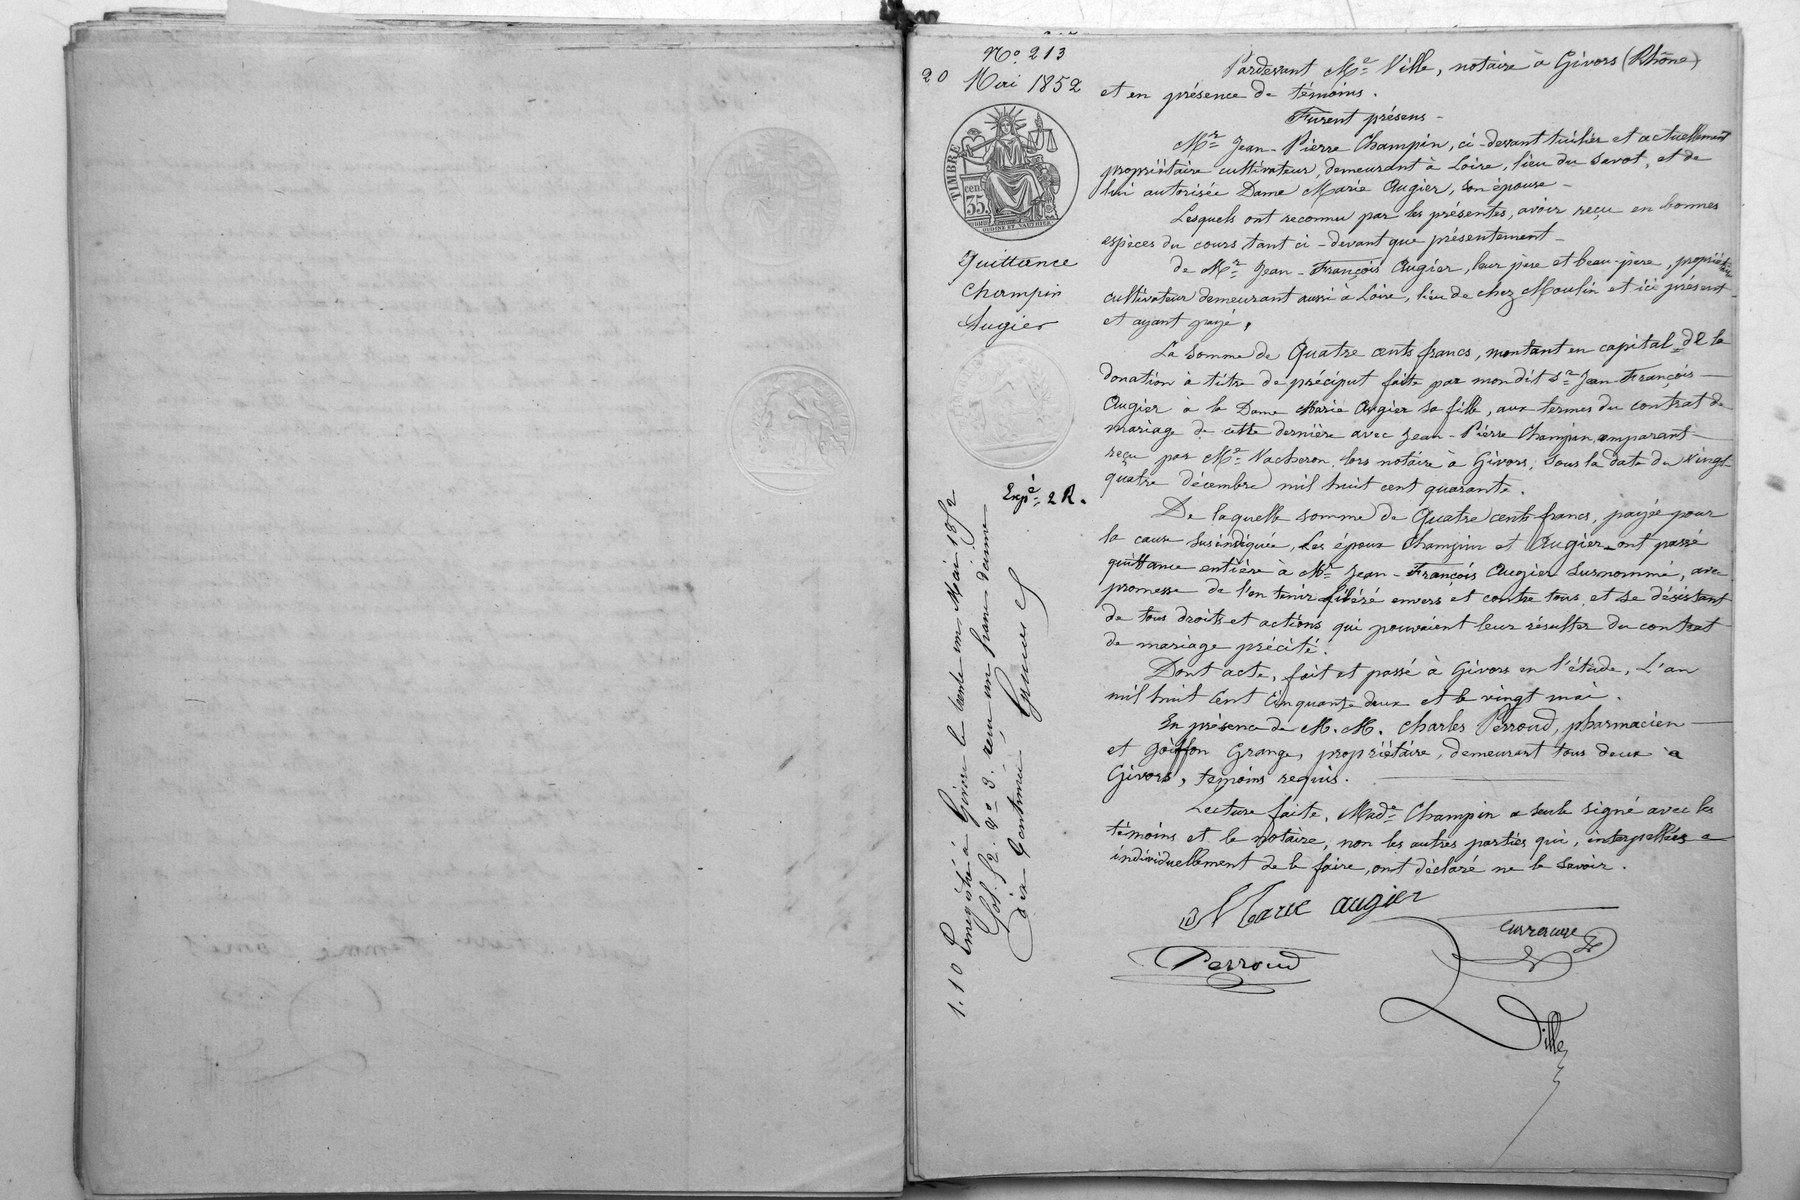 N° 213
20 Mai 1852
TIMBRE
cen.
35.
OUDINÉ ET VAUTHIER
Quittance
Champin
Augier
Expé 2 R.
1.10 Enregistré à Givors le trente un Mai 1852
fol. 52. v° 3. reçu un franc décime
dix Centimes
Pardevant Me Ville, notaire à Givors (Rhône)
et en présence de témoins.
Furent présens -
Mr Jean-Pierre Champin, ci-devant tuilier et actuellement
propriétaire cultivateur, demeurant à Loire, lieu du Savot, et de
lui autorisée Dame Marie Augier, son épouse -
Lesquels ont reconnu par les présentes, avoir reçu en bonnes
espèces du cours tant ci-devant que présentement -
de Mr Jean-François Augier, leur père et beau-père, propriétaire
cultivateur demeurant aussi à Loire, lieu de chez Moulin et ici présent
et ayant payé,
La somme de Quatre cents francs, montant en capital de la
donation à titre de préciput faite par mondit Sr Jean-François
Augier à la Dame Marie Augier sa fille, aux termes du contrat de
mariage de cette dernière avec Jean-Pierre Champin, comparant
reçu par Me Vacheron, lors notaire à Givors, sous la date du vingt
quatre décembre mil huit cent quarante.
De laquelle somme de Quatre cents francs, payée pour
la cause susindiquée, les époux Champin et Augier ont passé
quittance entière à Mr Jean-François Augier susnommé, avec
promesse de l'en tenir libéré envers et contre tous, et se désistant
de tous droits et actions qui pouvaient leur résulter du contrat
de mariage précité.
Dont acte, fait et passé à Givors en l'étude, L'an
mil huit Cent Cinquante deux et le vingt mai.
En présence de M.M. Charles Perroud, pharmacien
et Goiffon Grange, propriétaire, demeurant tous deux à
Givors, témoins requis.
Lecture faite, Made Champin a seule signé avec les
témoins et le notaire, non les autres parties qui, interpellées
individuellement de le faire, ont déclaré ne le savoir.
Marie augier
Perroud
Ville